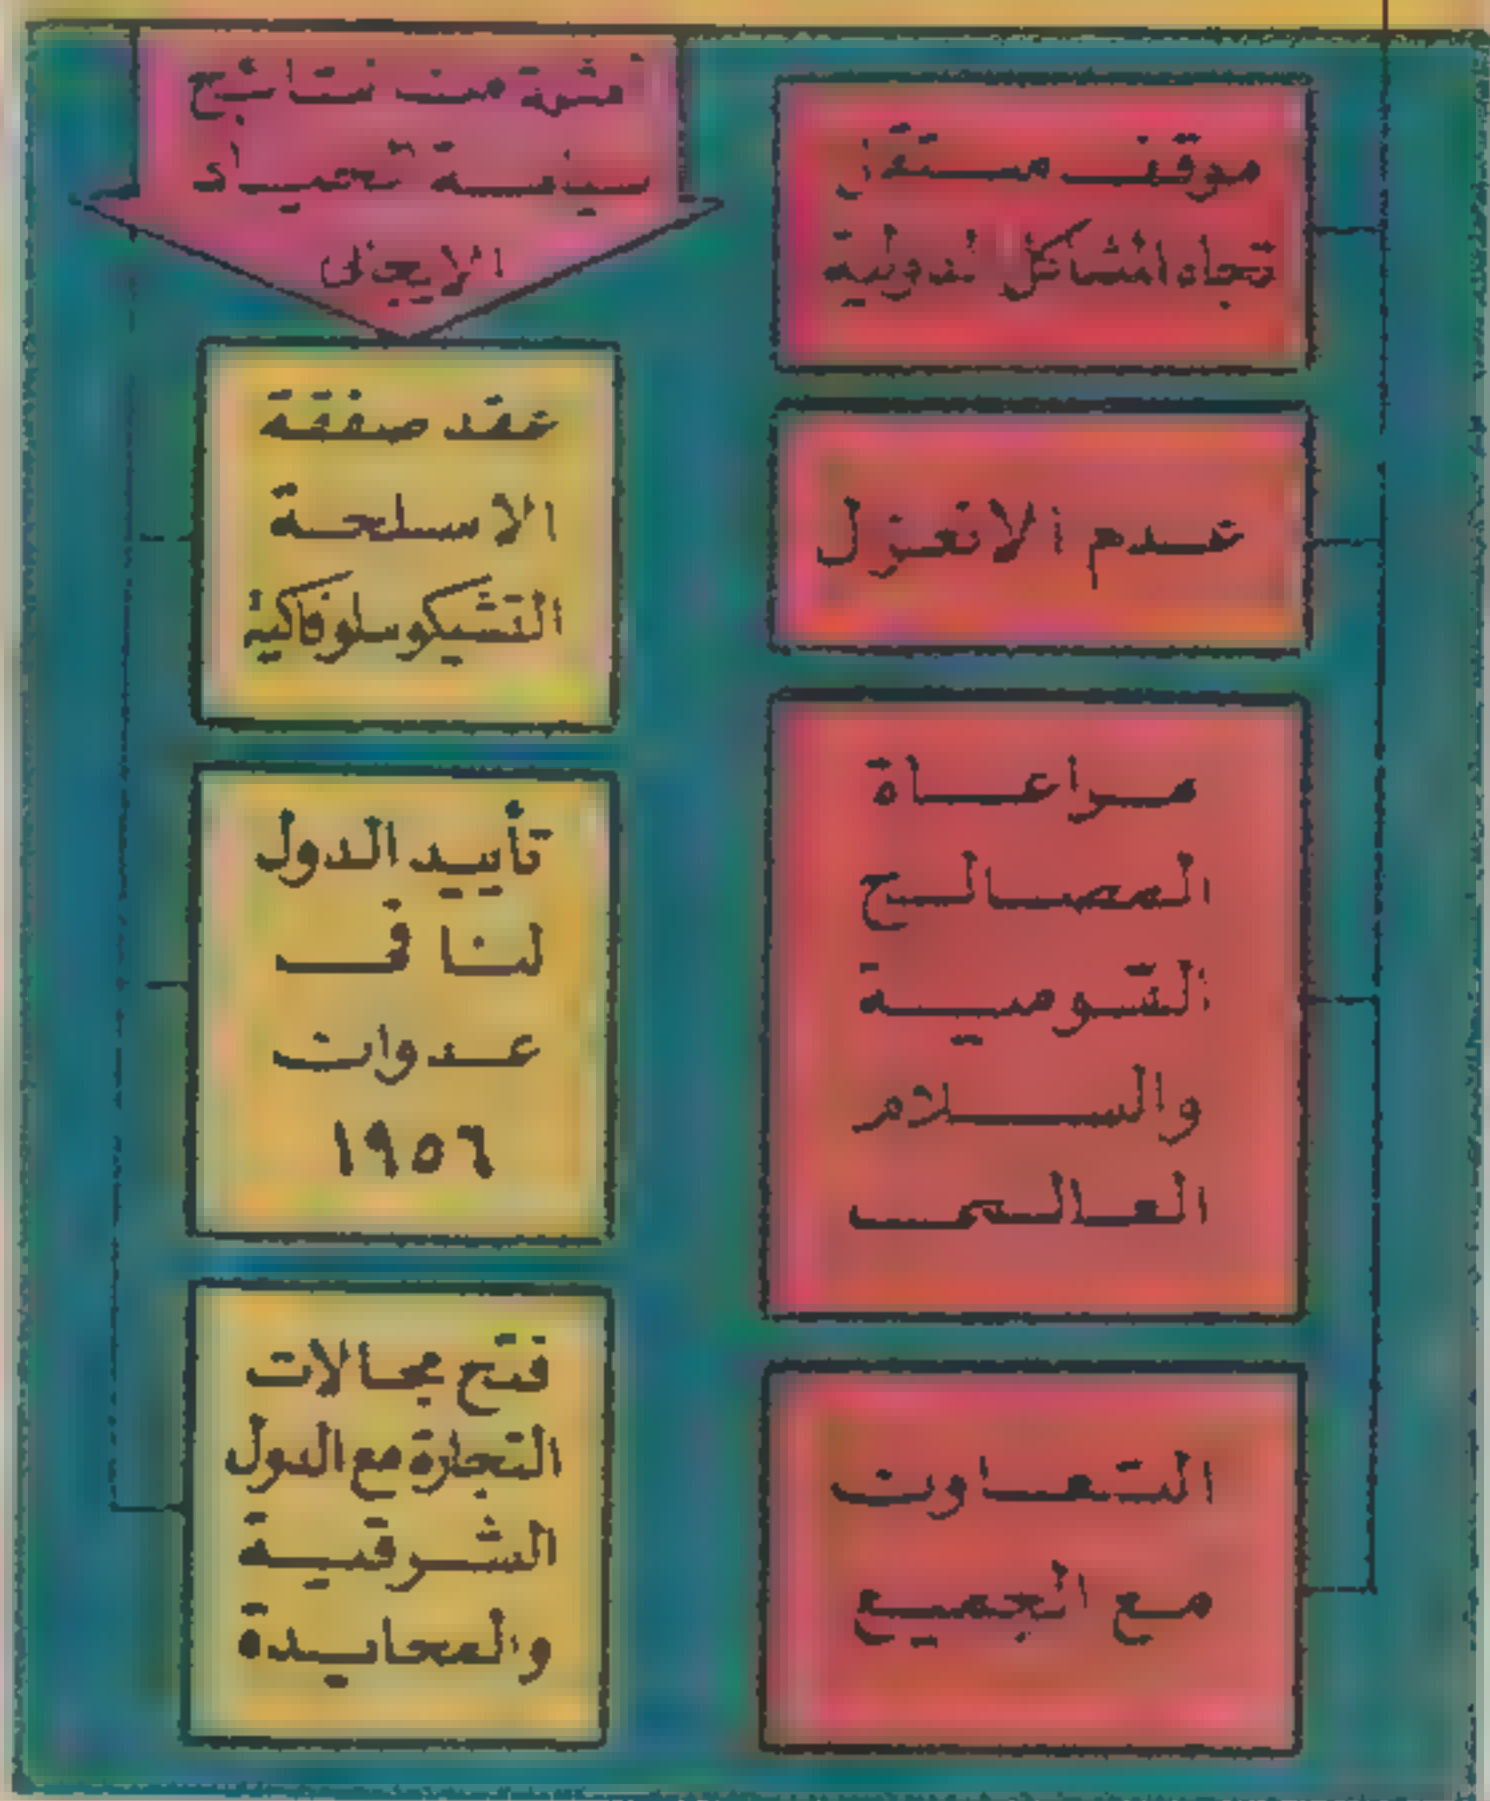 موقف مستقل
تجاه المشاكل الدولية
عدم الانعزال
مراعاة
المصالح
القومية
والسلام
العالمى
التعاون
مع الجميع
من نتائج
سياسة الحياد
الايجابى
عقد صفقة
الاسلحة
التشيكوسلوفاكية
تأييد الدول
لنا فى
عدوان
١٩٥٦
فتح مجالات
التجارة مع الدول
الشرقية
والمحايدة